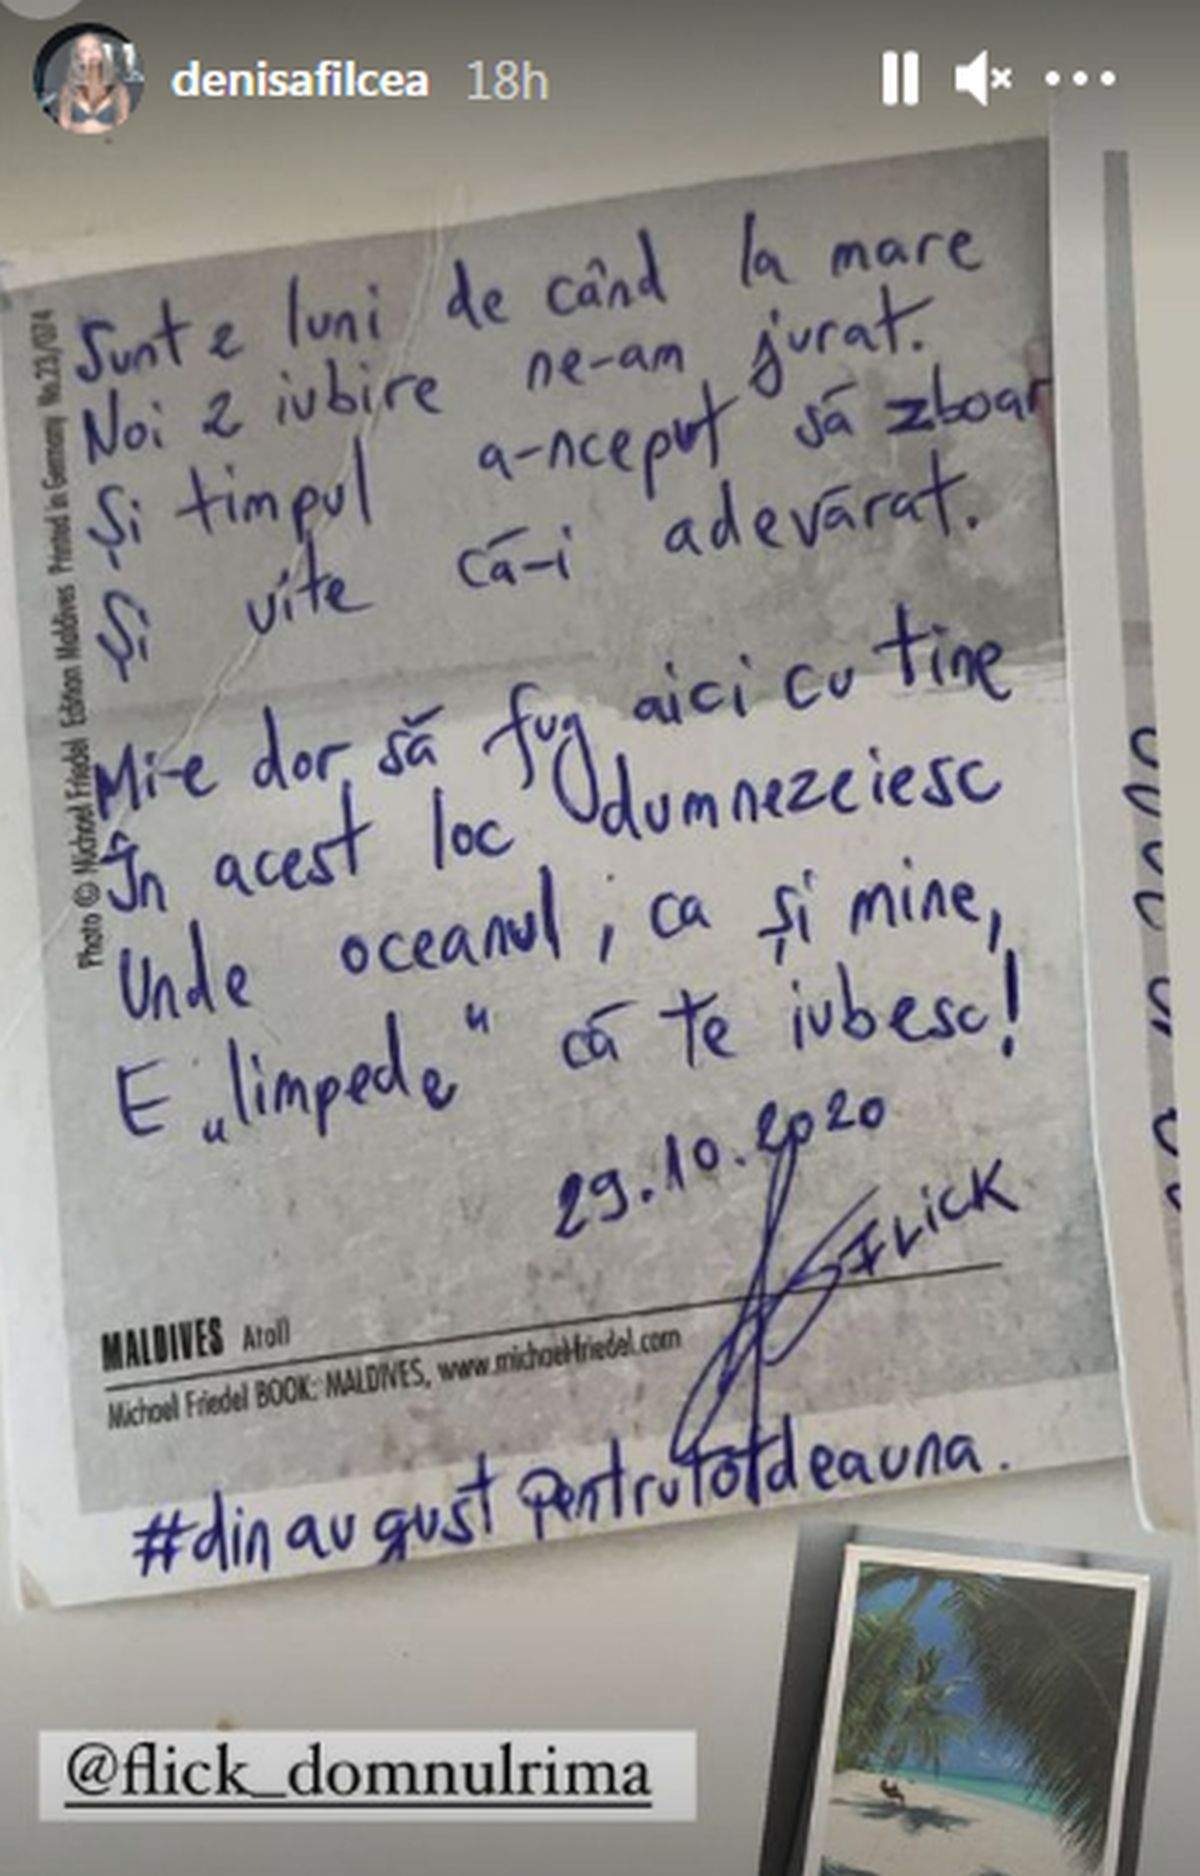 denisafilcea 18h
Sunt 2 luni de când la mare
Noi 2 iubire ne-am jurat.
Și timpul a-nceput să zboar
Și uite că-i adevărat.
Mi-e dor să fug aici cu tine
În acest loc dumnezeiesc
Unde oceanul, ca și mine,
E „limpede" că te iubesc!
29.10.2020
FLICK
MALDIVES Atoll
Michael Friedel BOOK: MALDIVES, www.michael-friedel.com
Photo © Michael Friedel Edition Maldives Printed in Germany No.23/074
#dinaugustpentrutotdeauna.
@flick_domnulrima